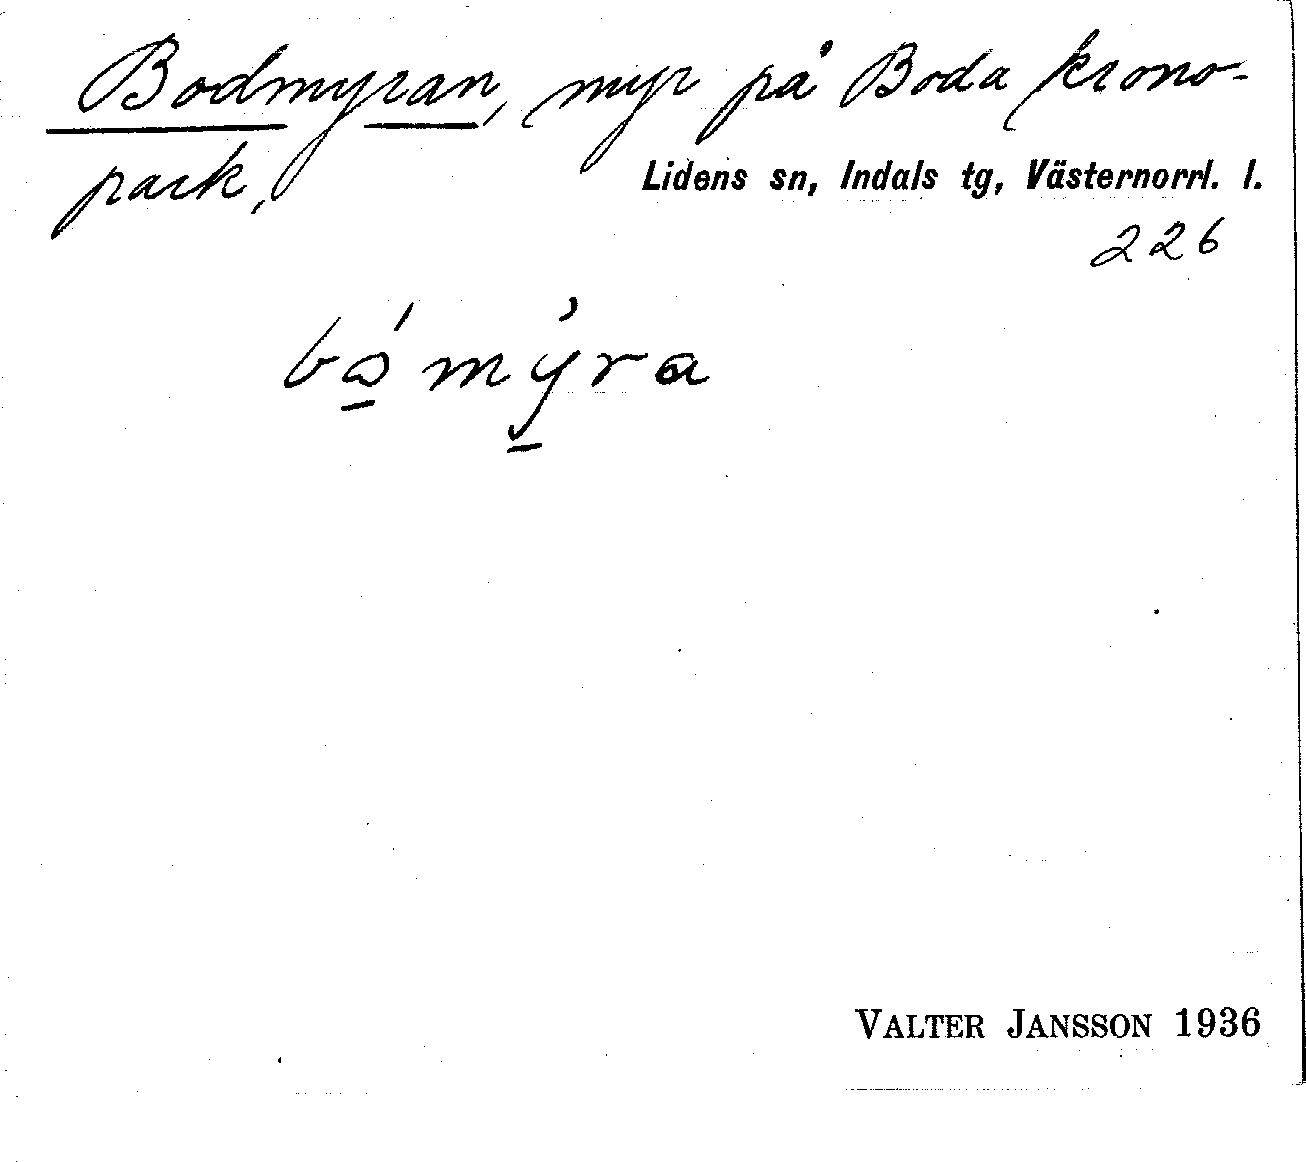 Bodmyran, myr på Boda krono-
park,
Lidens sn, Indals tg, Västernorrl. l.
226
VALTER JANSSON 1936